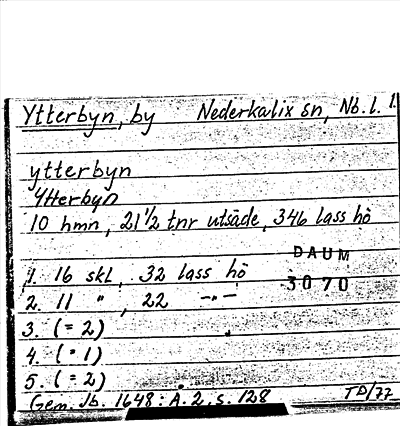 Ytterbyn, by Nederkalix sn, Nb.l. 1.
ytterbyn
Ytterbyn
10 hmn, 21 1/2 tnr utsäde, 346 lass hö
DAUM
3070
1. 16 skl, 32 lass hö
2. 11 " , 22 —"—
3. (=2)
4. (=1)
5. (=2)
Gem. Jb. 1648: A. 2. s. 128 TD/77